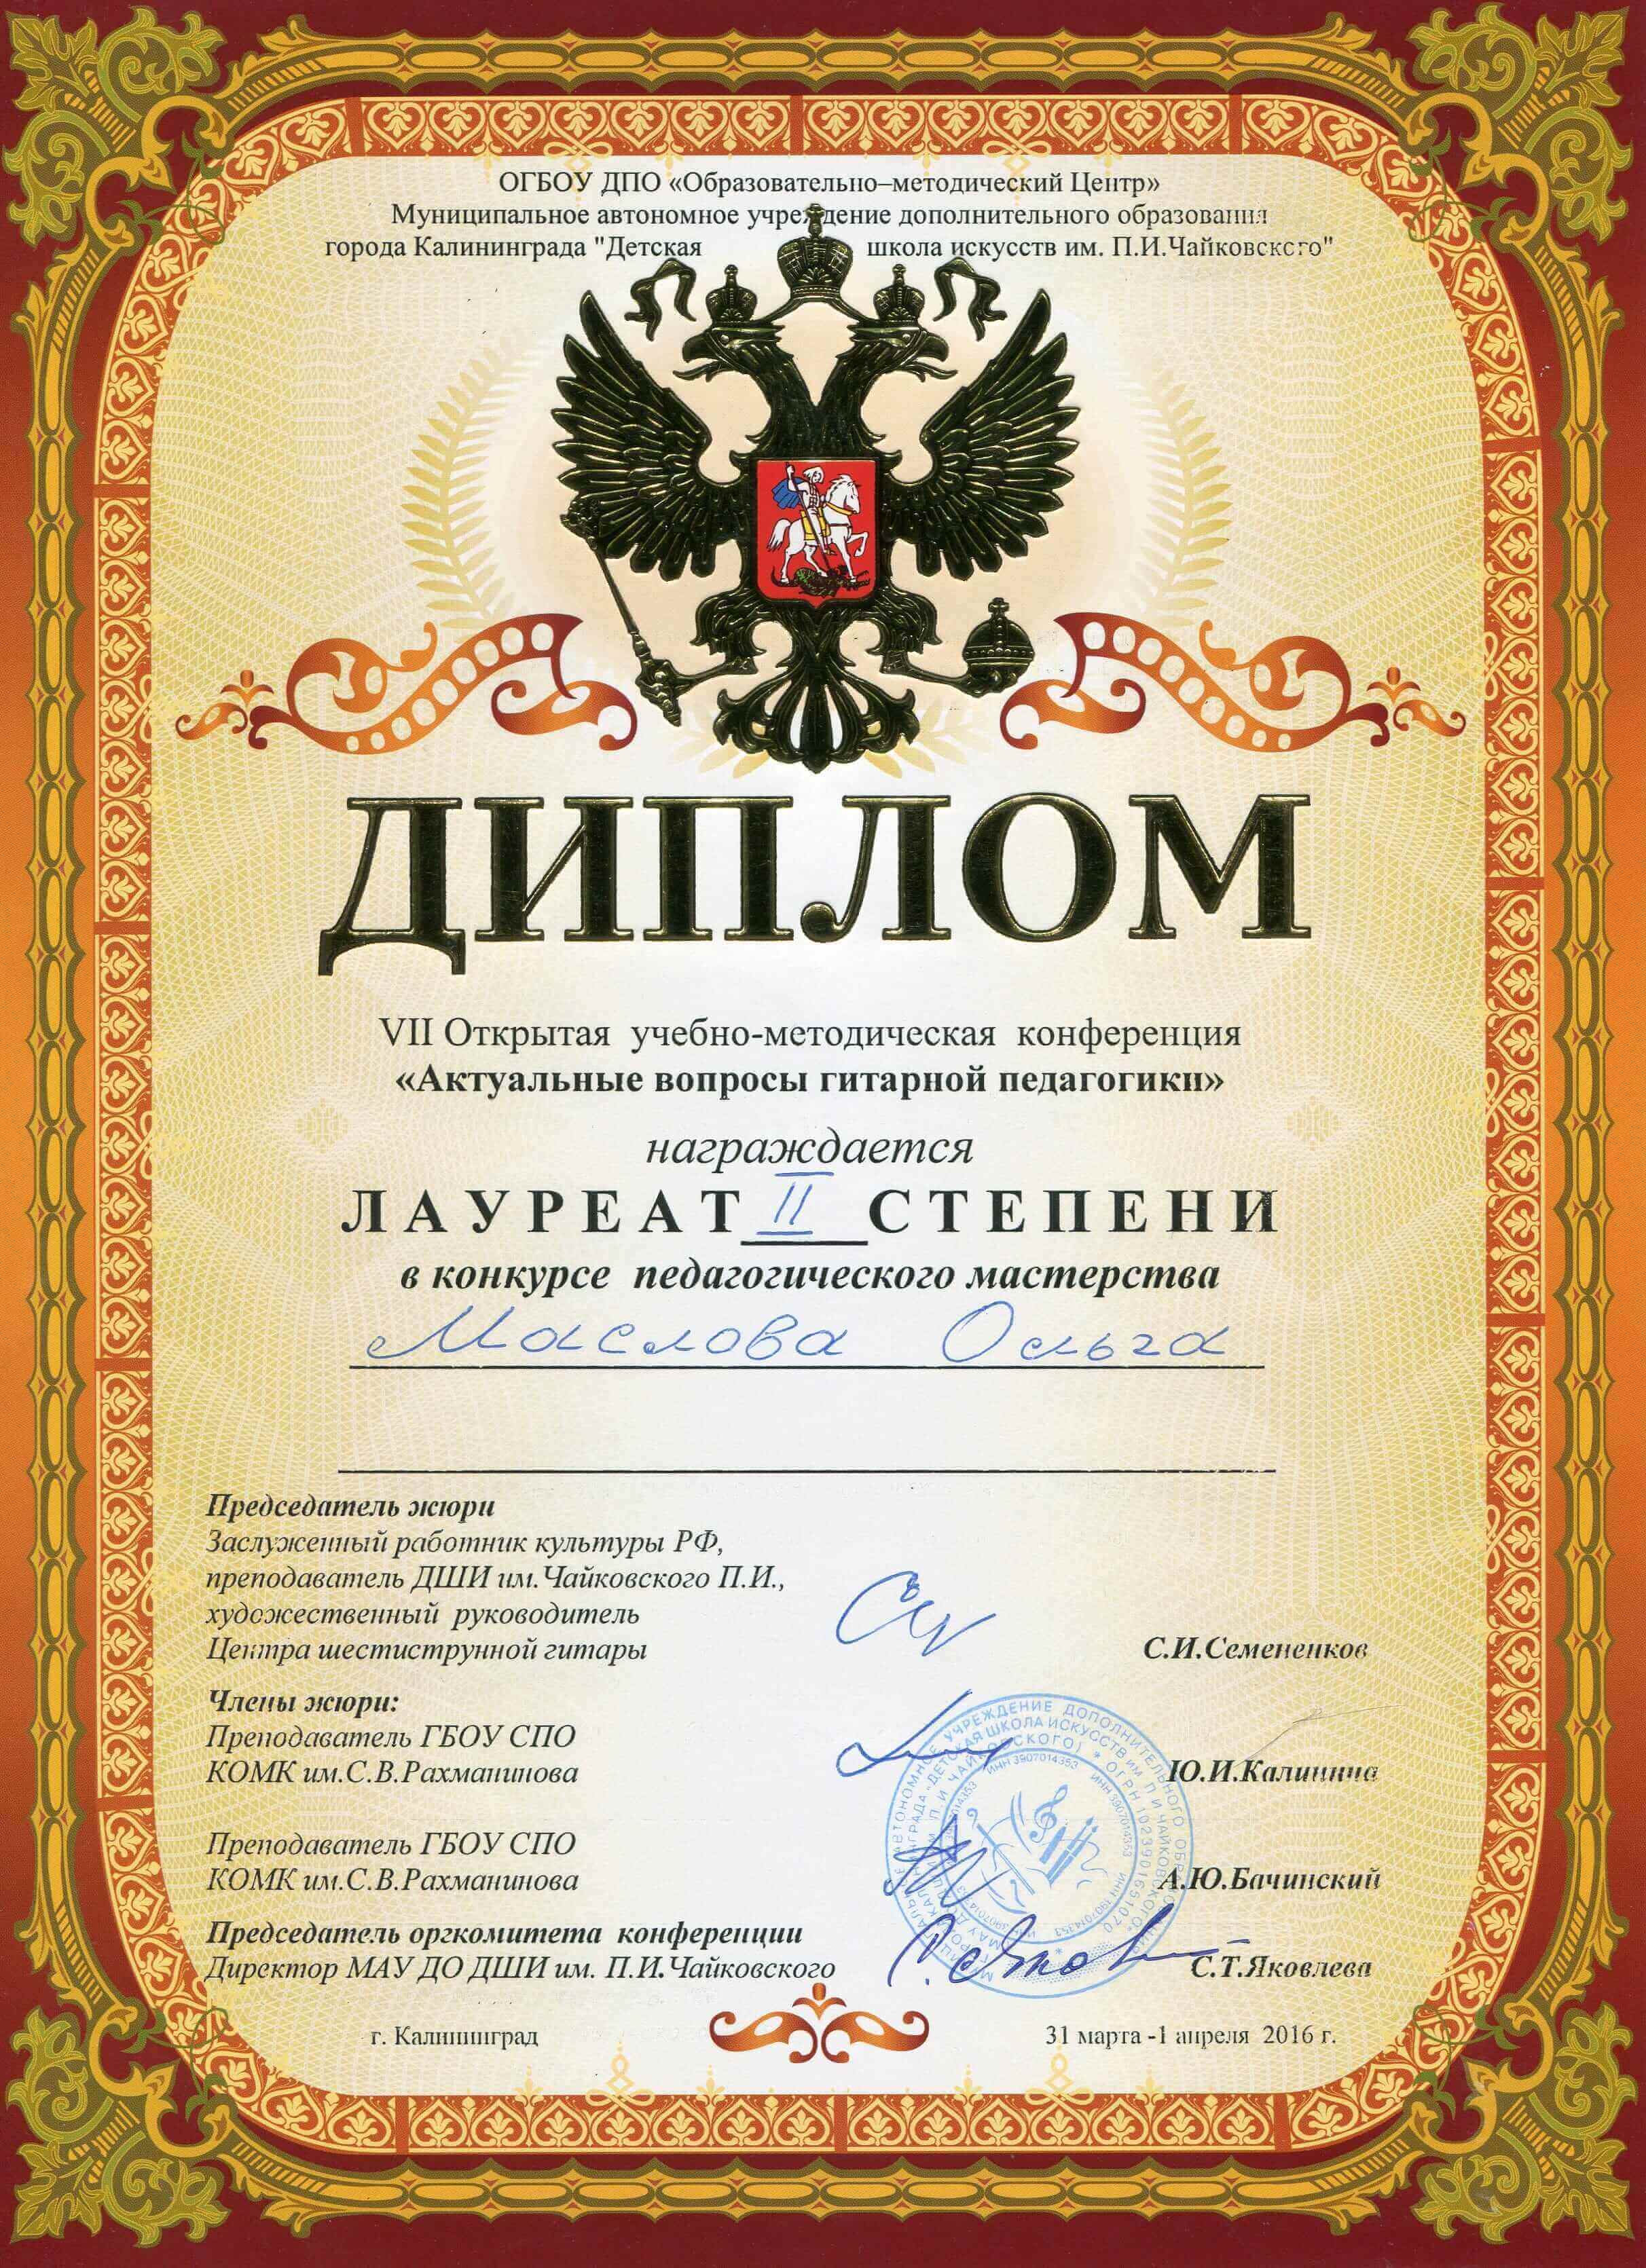 ОГБОУ ДПО «Образовательно–методический Центр»
Муниципальное автономное учреждение дополнительного образования
города Калининграда "Детская школа искусств им. П.И.Чайковского"
ДИПЛОМ
VII Открытая учебно-методическая конференция
«Актуальные вопросы гитарной педагогики»
награждается
ЛАУРЕАТ II СТЕПЕНИ
в конкурсе педагогического мастерства
Маслова Ольга
Председатель жюри
Заслуженный работник культуры РФ,
преподаватель ДШИ им.Чайковского П.И.,
художественный руководитель
Центра шестиструнной гитары С.И.Семененков
Члены жюри:
Преподаватель ГБОУ СПО
КОМК им.С.В.Рахманинова Ю.И.Калинина
Преподаватель ГБОУ СПО
КОМК им.С.В.Рахманинова А.Ю.Бачинский
Председатель оргкомитета конференции
Директор МАУ ДО ДШИ им. П.И.Чайковского С.Т.Яковлева
г. Калининград 31 марта -1 апреля 2016 г.